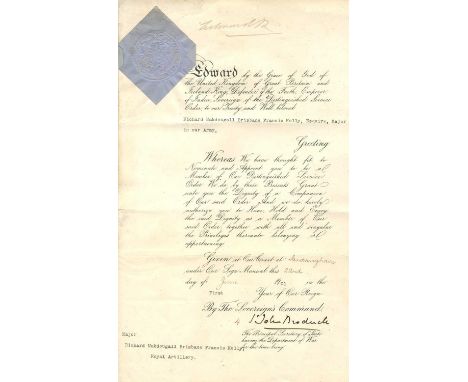 Edward R
Edward by the Grace of God of
the United Kingdom of Great Britain and
Ireland King, Defender of the Faith, Emperor
of India, Sovereign of the Distinguished Service
Order, to our Trusty and Well beloved
Richard Makdougall Brisbane Francis Kelly, Esquire, Major
in our Army,
Greeting
Whereas We have thought fit to
Nominate and Appoint you to be a
Member of Our Distinguished Service
Order We do by these Presents Grant
unto you the Dignity of a Companion
of Our said Order And we do hereby
authorize you to Have, Hold and Enjoy
the said Dignity as a Member of Our
said Order together with all and singular
the Privileges thereunto belonging or
appertaining
Given at Our Court at Sandringham
under Our Sign Manual this 22nd
day of June 190 in the
First Year of Our Reign
By The Sovereign's Command
St John Brodrick
The Principal Secretary of State
having the Department of War
for the time being
Major
Richard Makdougall Brisbane Francis Kelly,
Royal Artillery.